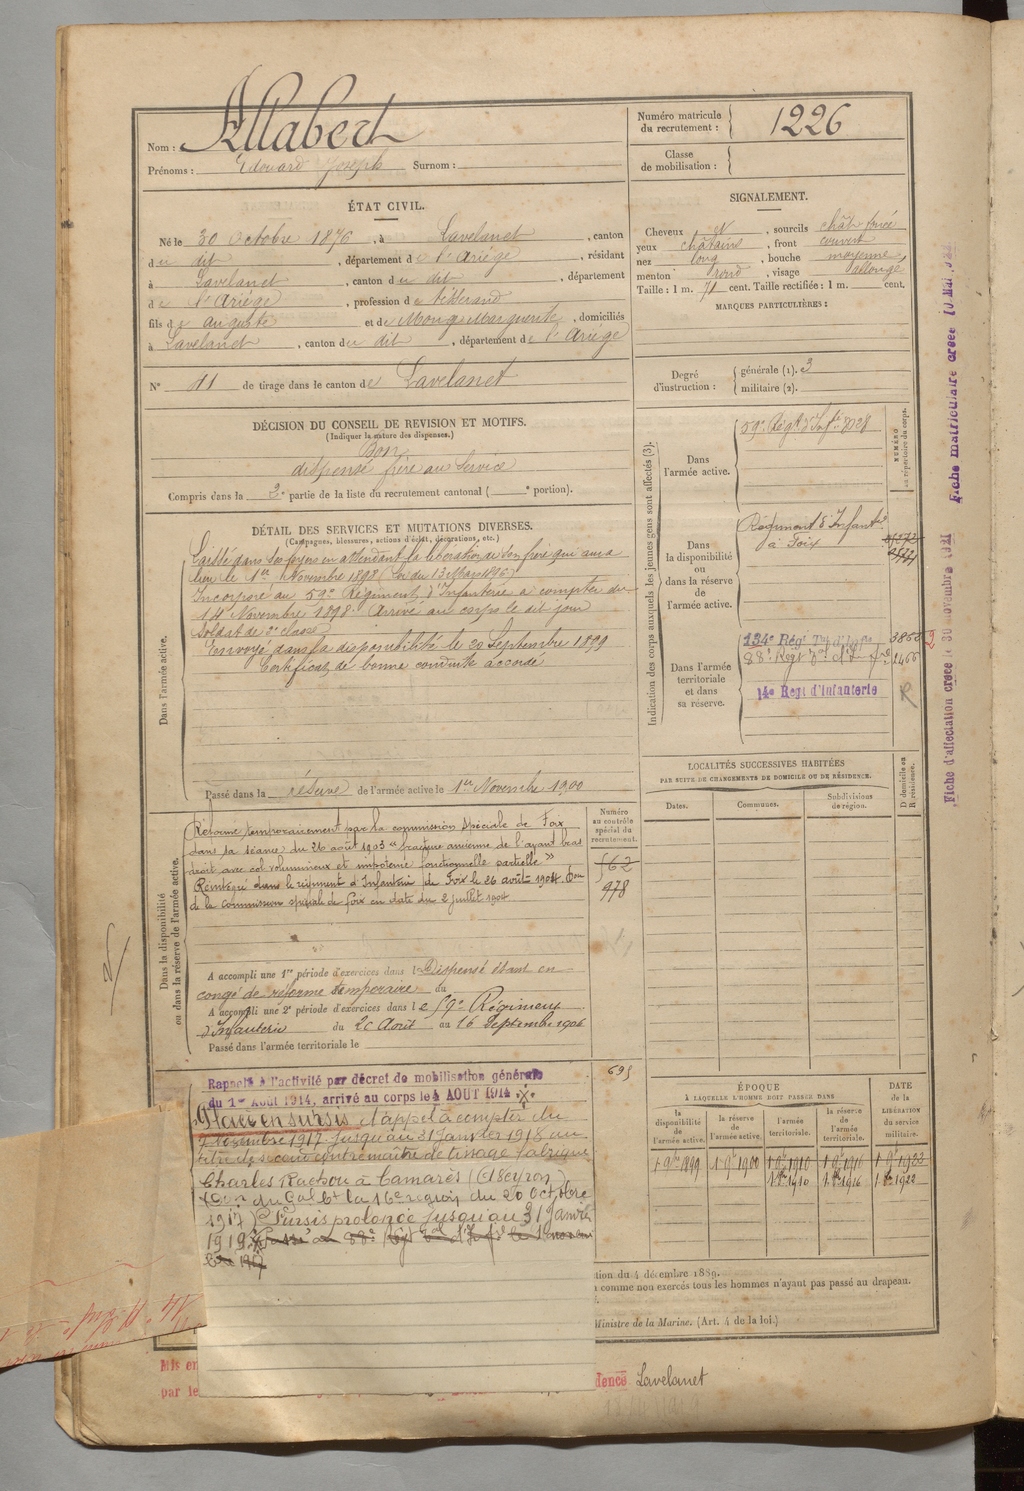 Nom : Allabert
Prénoms : Edouard Joseph Surnom :
Numéro matricule du recrutement : 1226
Classe de mobilisation :
ÉTAT CIVIL.
Né le 30 Octobre 1876, à Lavelanet, canton
du dit, département de l'Ariège, résidant
à Lavelanet, canton du dit, département
de l'Ariège, profession de tisserand
fils de Auguste et de Mongs Marguerite, domiciliés
à Lavelanet, canton du dit, département de l'Ariège
N° 41 de tirage dans le canton de Lavelanet
SIGNALEMENT.
Cheveux et, sourcils chât foncé
yeux châtains, front couvert
nez long, bouche moyenne
menton rond, visage allongé
Taille : 1 m. 71 cent. Taille rectifiée : 1 m. cent.
MARQUES PARTICULIÈRES :
Degré d'instruction : générale (1). 3
militaire (2).
DÉCISION DU CONSEIL DE REVISION ET MOTIFS.
(Indiquer la nature des dispenses.)
Bon
dispensé frère au service
Compris dans la 2e partie de la liste du recrutement cantonal ( e portion).
DÉTAIL DES SERVICES ET MUTATIONS DIVERSES.
(Campagnes, blessures, actions d'éclat, décorations, etc.)
Dans l'armée active.
Laissé dans ses foyers en attendant la libération de son frère qui aura
lieu le 1er Novembre 1898 (Loi du 13 Mars 1896)
Incorporé au 59e Régiment d'Infanterie à compter du
14 Novembre 1898. Arrivé au corps le dit jour
Soldat de 2e classe
Envoyé dans la disponibilité le 20 Septembre 1899
Certificat de bonne conduite accordé
Passé dans la réserve de l'armée active le 1er Novembre 1900
Dans la disponibilité ou dans la réserve de l'armée active.
Réformé temporairement par la commission spéciale de Foix
dans sa séance du 26 août 1903 "fracture ancienne de l'avant bras
droit avec cal volumineux et impotence fonctionnelle partielle"
Réintégré dans le régiment d'Infanterie de Foix le 26 août 1904. Don
de la commission spéciale de Foix en date du 2 juillet 1904
A accompli une 1re période d'exercices dans l Dispensé étant en
congé de réforme temporaire du
A accompli une 2e période d'exercices dans le 59e Régiment
d'Infanterie du 20 Août au 16 Septembre 1906
Passé dans l'armée territoriale le
Numéro au contrôle spécial du recrutement.
562
978
695
Rappelé à l'activité par décret de mobilisation générale
du 1er Août 1914, arrivé au corps le 4 AOUT 1914
Placé en sursis d'appel à compter du
7 Novembre 1917 jusqu'au 31 Janvier 1918 au
titre de second contremaître de tissage fabrique
Charles Rachou à Camarès (Aveyron)
(Don du Gal Ct la 16e région du 20 Octobre
1917) Sursis prolongé jusqu'au 31 Janvier
1919
Indication des corps auxquels les jeunes gens sont affectés (3).
NUMÉRO au répertoire du corps.
Dans l'armée active.
59e Régt d'Infie 8028
Dans la disponibilité ou dans la réserve de l'armée active.
Régiment d'Infantie
à Foix
Dans l'armée territoriale et dans sa réserve.
134e Régt Tal d'Infie 3858
88e Régt Tal d'Infie 2466
14e Régt d'Infanterie
R
LOCALITÉS SUCCESSIVES HABITÉES
PAR SUITE DE CHANGEMENTS DE DOMICILE OU DE RÉSIDENCE.
Dates. Communes. Subdivisions de région. D domicile ou R résidence.
ÉPOQUE
À LAQUELLE L'HOMME DOIT PASSER DANS
DATE de la LIBÉRATION du service militaire.
la disponibilité de l'armée active. la réserve de l'armée active. l'armée territoriale. la réserve de l'armée territoriale.
1 9bre 1899 1 9bre 1900 1 9bre 1910 1 9bre 1916 1 9bre 1923
1 8bre 1910 1 8bre 1916 1 8bre 1922
tion du 4 décembre 1889.
comme non exercés tous les hommes n'ayant pas passé au drapeau.
Ministre de la Marine. (Art. 4 de la loi.)
Mis en
par le
dence Lavelanet
Fiche matriculaire créée 10 MAI
Fiche d'affectation créée le 30 novembre